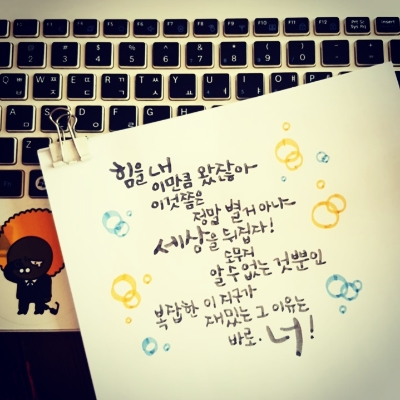 힘을 내
이만큼 왔잖아
이것쯤은
정말 별거 아냐
세상을 뒤집자!
도무지
알 수 없는 것뿐인
복잡한 이 지구가
재밌는 그 이유는
바로. 너!